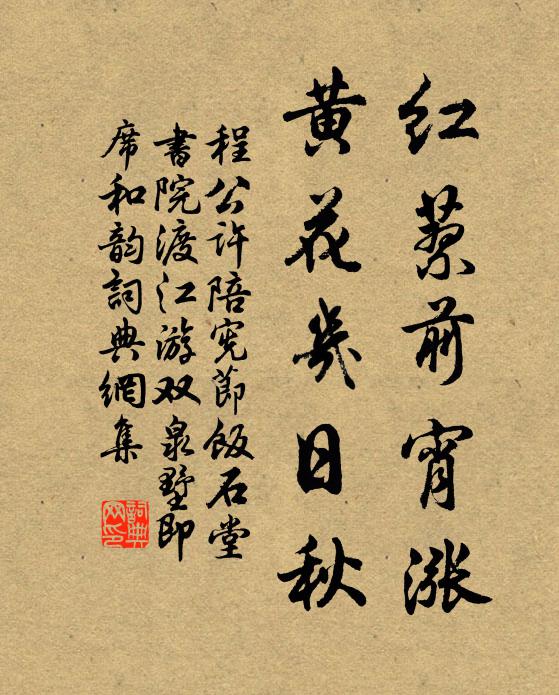 红蓼前宵涨
黄花幾日秋
程公许陪宪節飯石堂
書院渡江游双泉墅即
席和韵詞典網集
詞典
网印